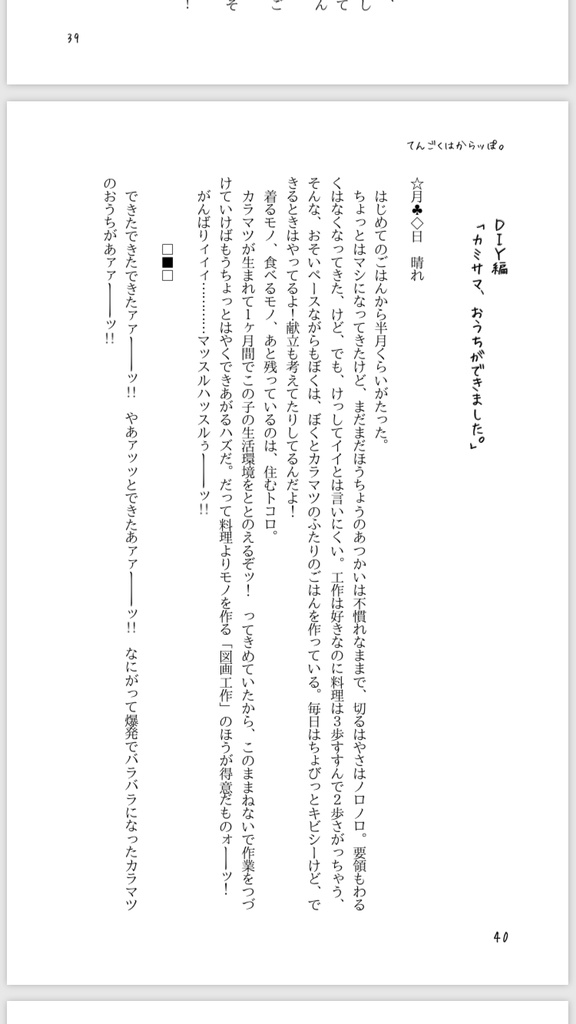 ！　そ　ご　んてし、
39
てんごくはからッぽ。
DIY編
「カミサマ、おうちができました。」
☆月♣◇日　晴れ
はじめてのごはんから半月くらいがたった。
ちょっとはマシになってきたけど、まだまだほうちょうのあつかいは不慣れなままで、切るはやさはノロノロ。要領もわる
くはなくなってきた、けど、でも、けっしてイイとは言いにくい。工作は好きなのに料理は３歩すすんで２歩さがっちゃう、
そんな、おそいペースながらもぼくは、ぼくとカラマツのふたりのごはんを作っている。毎日はちょびっとキビシーけど、で
きるときはやってるよ！献立も考えてたりしてるんだよ！
着るモノ、食べるモノ、あと残っているのは、住むトコロ。
カラマツが生まれて１ヶ月間でこの子の生活環境をととのえるぞッ！　ってきめていたから、このままねないで作業をつづ
けていけばもうちょっとはやくできあがるハズだ。だって料理よりモノを作る「図画工作」のほうが得意だものォーーッ！
がんばりィィィ…………マッスルハッスルぅーーッ!!
□■□
できたできたできたァァーーッ!!　やあアッッとできたあァァーーッ!!　なにがって爆発でバラバラになったカラマツ
のおうちがあァァーーッ!!
40